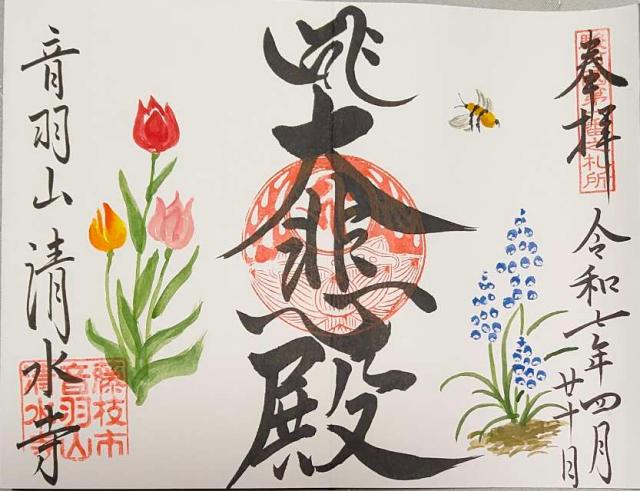 奉拝
令和七年四月
廿十日
大悲殿
音羽山清水寺
藤枝市
音羽山
清水寺